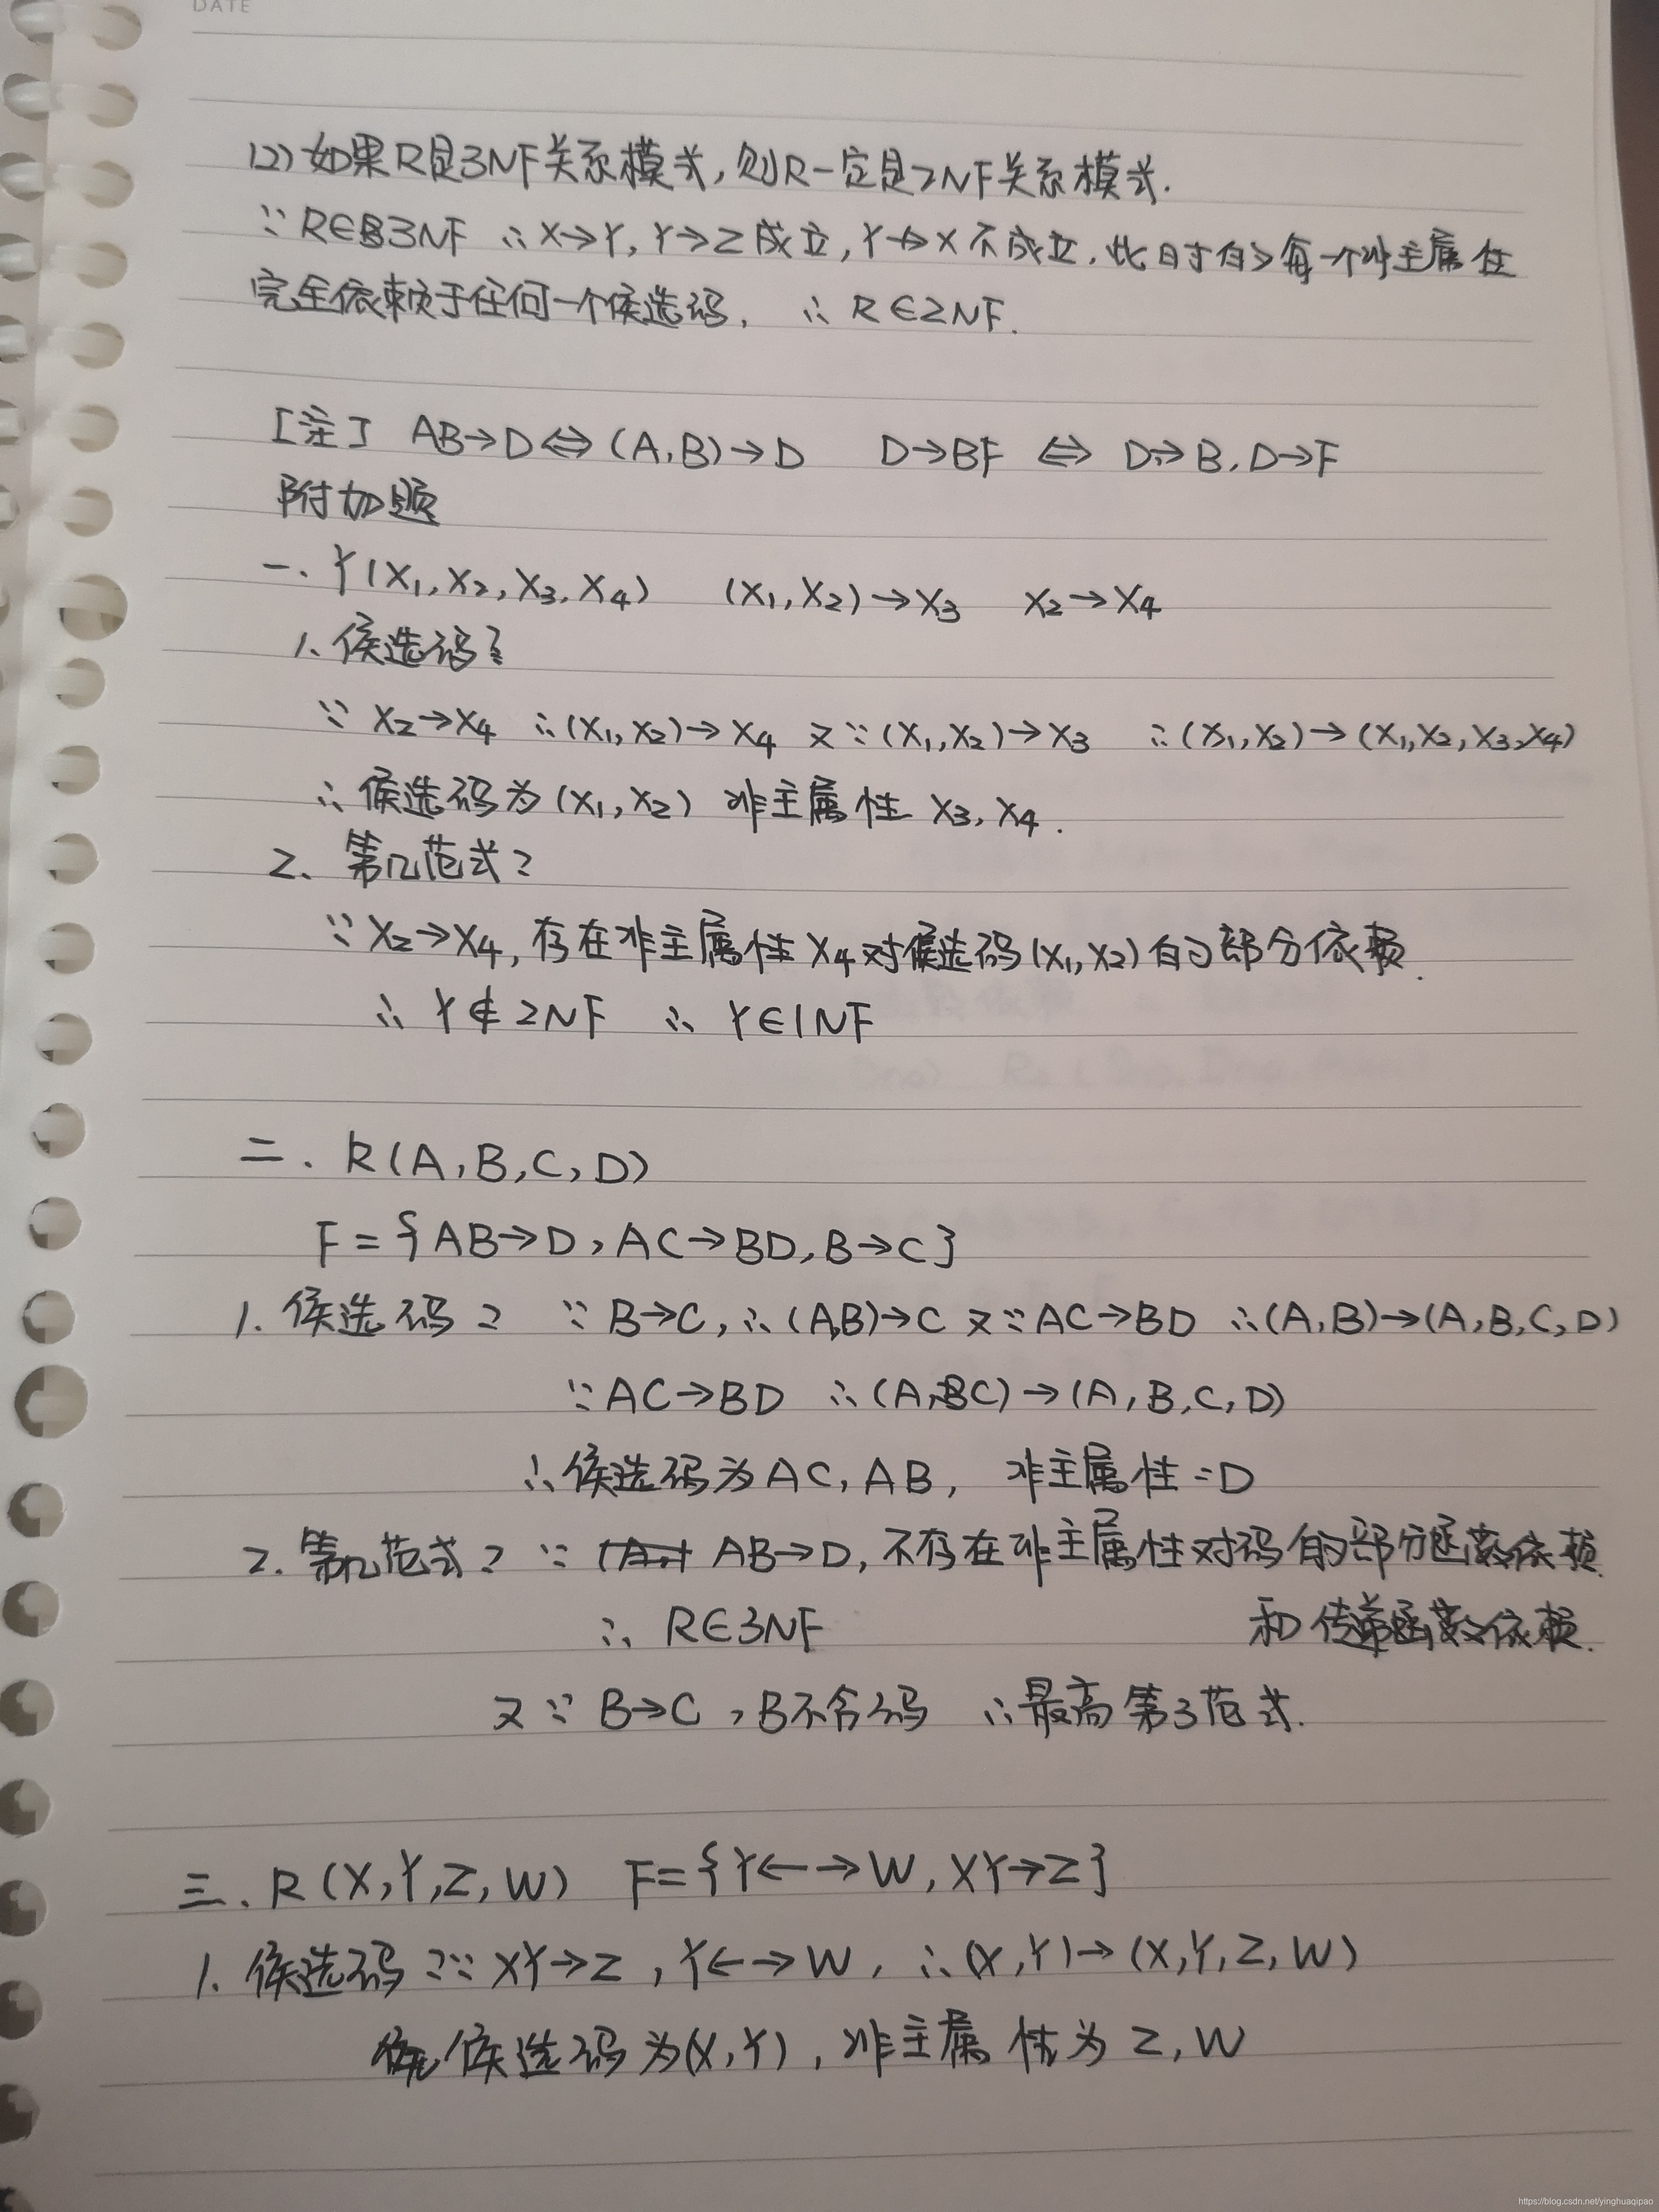 DATE
(2) 如果R是3NF关系模式,则R一定是2NF关系模式.
∵ R∈3NF ∴ X→Y, Y→Z成立, Y↛X不成立, 此时的每一个非主属性
完全依赖于任何一个候选码, ∴ R∈2NF.
[注] AB→D⇔(A,B)→D D→BF ⇔ D→B, D→F
附加题
一. Y(X₁,X₂,X₃,X₄) (X₁,X₂)→X₃ X₂→X₄
1. 候选码?
∵ X₂→X₄ ∴(X₁,X₂)→X₄ 又∵(X₁,X₂)→X₃ ∴(X₁,X₂)→(X₁,X₂,X₃,X₄)
∴ 候选码为(X₁,X₂) 非主属性 X₃,X₄.
2. 第几范式?
∵X₂→X₄, 存在非主属性X₄对候选码(X₁,X₂)的部分依赖.
∴ Y∉2NF ∴ Y∈1NF
二. R(A,B,C,D)
F={AB→D, AC→BD, B→C}
1. 候选码? ∵ B→C, ∴(A,B)→C 又∵AC→BD ∴(A,B)→(A,B,C,D)
∵AC→BD ∴(A,C)→(A,B,C,D)
∴候选码为AC, AB, 非主属性=D
2. 第几范式? ∵ AB→D, 不存在非主属性对码的部分函数依赖
和传递函数依赖.
∴ R∈3NF
又∵ B→C, B不含码 ∴最高第3范式.
三. R(X,Y,Z,W) F={Y←→W, XY→Z}
1. 候选码?∵ XY→Z, Y←→W, ∴(X,Y)→(X,Y,Z,W)
候选码为(X,Y), 非主属性为 Z,W
https://blog.csdn.net/yinghuaqipao